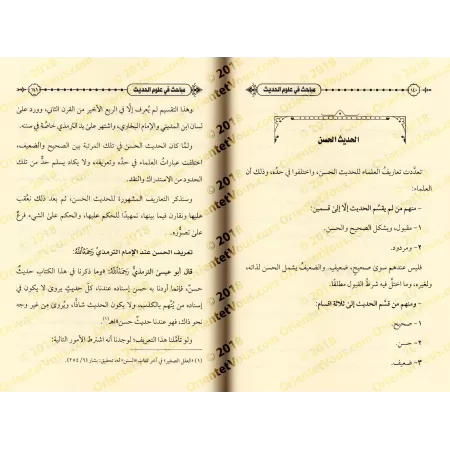 مباحث في علوم الحديث
١٤٠
الحديث الحسن
تعدّدت تعاريفُ العلماء للحديث الحسن، واختلفوا في حدِّه، وذلك أن
العلماء:
- منهم من لم يقسِّم الحديث إلَّا إلى قسمين:
١- مقبول، ويشكل الصحيح والحسن.
٢- ومردود.
فليس عندهم سوى صحيح، ضعيف. والضعيفُ يشمل الحسن لذاته،
ولغيره، وما اختلَّ فيه شرطُ القبول مطلقًا.
- ومنهم من قسَّم الحديث إلى ثلاثة أقسام:
١- صحيح.
٢- حسن.
٣- ضعيف.
مباحث في علوم الحديث
١٤١
وهذا التقسيم لم يُعرف إلَّا في الربع الأخير من القرن الثاني، وورد على
لسان ابن المديني والإمام البخاري، واشتهر على يد الترمذي خاصَّة في سننه.
ولمَّا كان الحديث الحسن في تلك المرتبة بين الصحيح والضعيف،
اختلفت عبارات العلماء في حدِّه وتعريفه، ولا يكاد يسلم حدٌّ من تلك
الحدود من الاستدراك والنقد.
وسنذكر التعاريف المشهورة للحديث الحسن، ثم بعد ذلك نعقّب
عليها ونقارن فيما بينها، تمهيدًا للحكم عليها، والحكم على الشيء فرعٌ
عن تصوُّره.
تعريف الحسن عند الإمام الترمذيِّ رَحِمَهُ ٱللَّهُ:
قال أبو عيسى الترمذيُّ رَحِمَهُ ٱللَّهُ: «وما ذكرنا في هذا الكتاب حديثٌ
حسنٌ، فإنما أردنا به حسن إسناده عندنا، كلُّ حديثٍ يروى لا يكون في
إسناده من يُتَّهم بالكذب، ولا يكون الحديث شاذًّا، ويُروى من غير وجه
نحو ذلك، فهو عندنا حديثٌ حسن»اهـ(١).
ولو تأمَّلنا هذا التعريف؛ لوجدنا أنه اشترط الأمور التالية:
(١) «العلل الصغير» في آخر
OrientetVoirs.com
© 2018